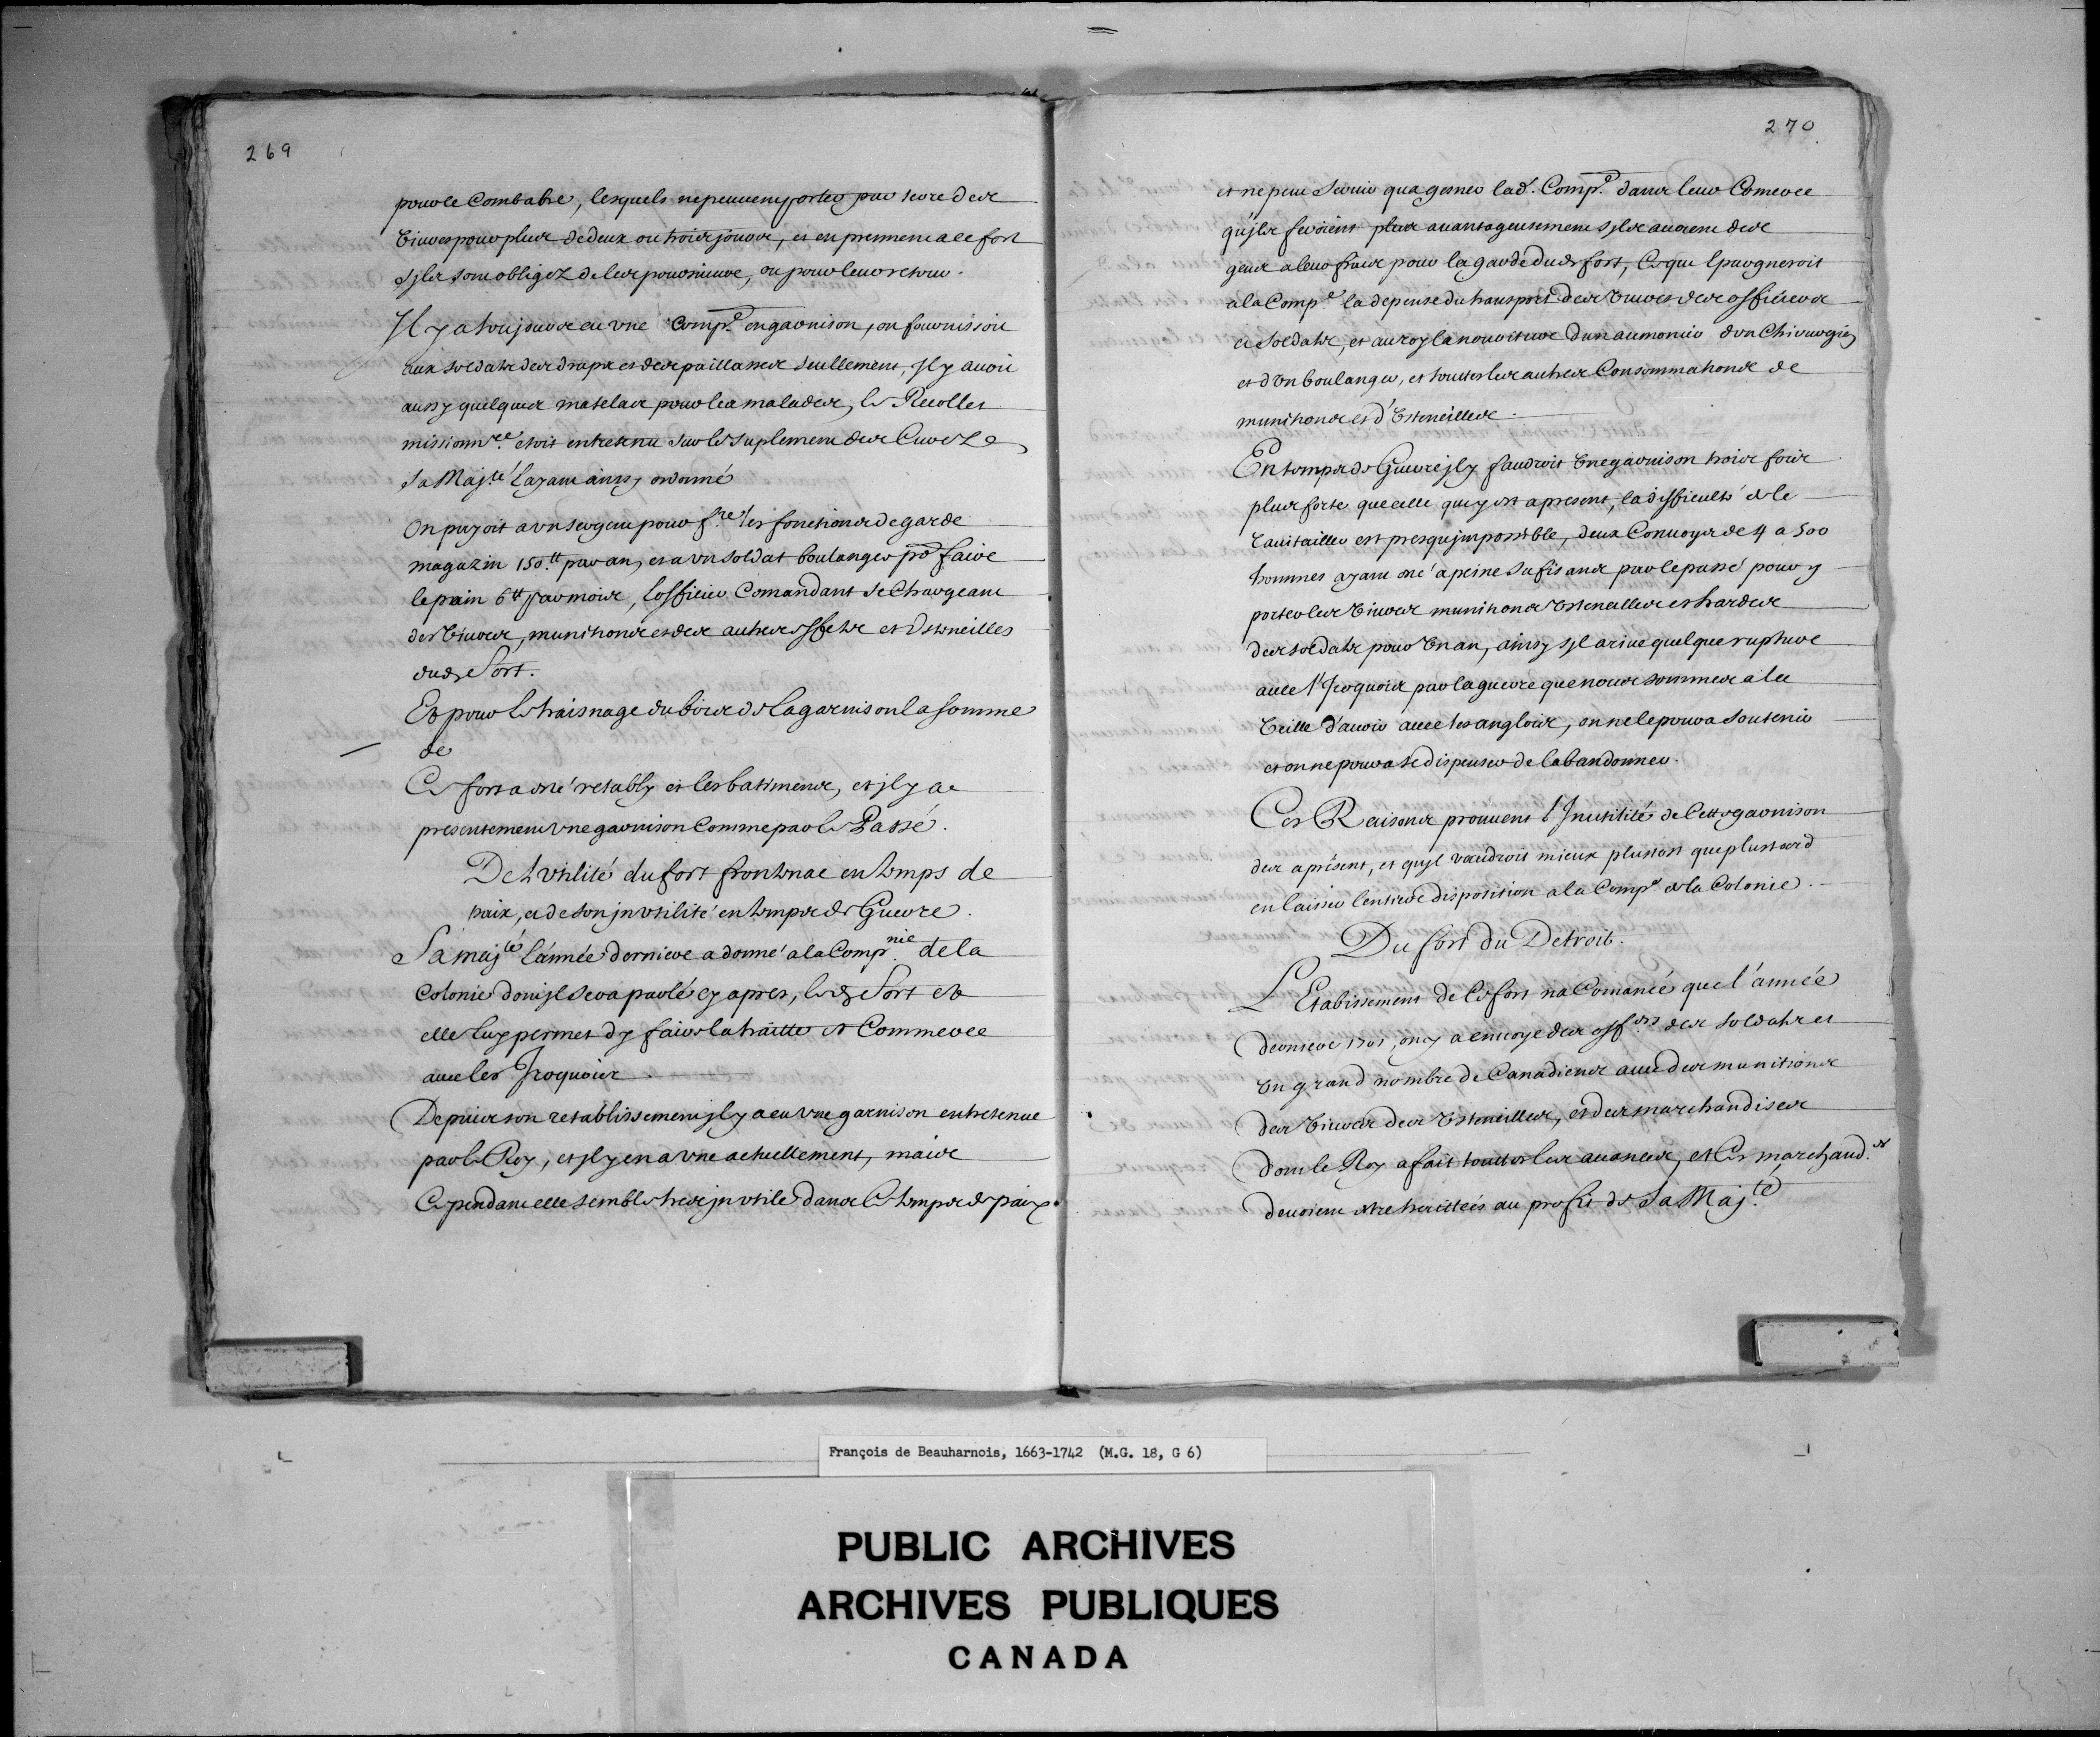 269
pour le Combatre, lesquels ne peuuent porter par terre des
viures pour plus de deux ou trois jours, et en prennent a ce fort
sjls sont obligez de les poursuiure, ou pour leur retour.
Il y a toujours eu vne Comp.e en garnison, on fournissoit
aux soldats des draps et des paillasses seullement, jl y auoit
aussy quelques matelats pour les malades, le Recollet
missionn.re etoit entretenu sur le suplement des Cures
sa Maj.té layant ainsy ordonné
On payoit a vn sergent pour f.re les fonctions de garde
magazin 150.tt par an, et a vn soldat boulanger p.r faire
le pain 6tt par mois, lofficier Comandant se Chargeant
des viures, munitions et des autres effets et vstencilles
dud. fort.
Et pour le traisnage du bois de la garnison la somme
de
Ce fort a esté retably et les batiments, et jl y a
presentement vne garnison Comme par le Passé.
De l vtilité du fort frontenac en temps de
paix, et de son jnvtilité en temps de Guerre.
Sa maj.té l'année derniere a donné a la Comp.nie de la
Colonie dont jl sera parlé cy apres, led. fort et
elle luy permet dy faire la traitte et Commerce
auec les Iroquois
Depuis son retablissement jl y a eu vne garnison entretenue
par le Roy, et jl y en a vne actuellement, mais
Cependant elle semble tres jnvtile dans le temps de paix
270
et ne peut seruir qua gesner lad. Comp.e dans leur Comerce
qujls feroient plus auantageusement sjls auoient des
gens a leur frais pour la garde dud. fort, Ce qui Epargneroit
a la Comp.e la depense du transport des viures des officiers
et soldats, et au roy la nouriture dun aumonier dvn Chirurgien
et dvn boulanger, et touttes les autres Consommations de
munitions et d'vstencilles.
En temps de Guerre jl y faudroit vne garnison trois fois
plus forte que celle quy est apresent, la difficulté de le
rauitailler est presqu jmpossible, deux Conuoys de 4 a 500
hommes ayant esté a peine sufisans par le passé pour y
porter les viures munitions vstencilles et hardes
des soldats pour vn an, ainsy sjl ariue quelque rupture
auec l'Iroquois par la guerre que nous sommes a la
veille d'auoir auec les anglois, on ne le poura soutenir
et on ne poura se dispenser de labandonner.
Ces Raisons prouuent l'Inutilité de Cette garnison
des apresent, et quyl vaudroit mieux plustost que plustard
en laisser lentiere disposition a la Comp.e de la Colonie.
Du fort du Detroit.
L'Etablissement de Ce fort na Comancé que l'année
derniere 1701, on y a enuoyé des off.ers des soldats et
vn grand nombre de Canadiens auec des munitions
des viures des vstencilles, et des marchandises
dont le Roy a fait touttes les auances, et Ces marchand.es
deuoient etre traittées au profit de Sa Maj.té
François de Beauharnois, 1663-1742 (M.G. 18, G 6)
PUBLIC ARCHIVES
ARCHIVES PUBLIQUES
CANADA